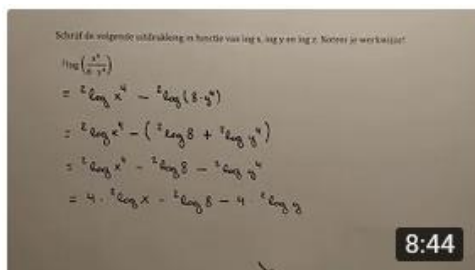 Schrijf de volgende uitdrukking in functie van log x, log y en log z. Noteer je werkwijze!
²log (x⁴ / 8·y⁴)
= ²log x⁴ − ²log (8·y⁴)
= ²log x⁴ − (²log 8 + ²log y⁴)
= ²log x⁴ − ²log 8 − ²log y⁴
= 4 · ²log x − ²log 8 − 4 · ²log y
8:44